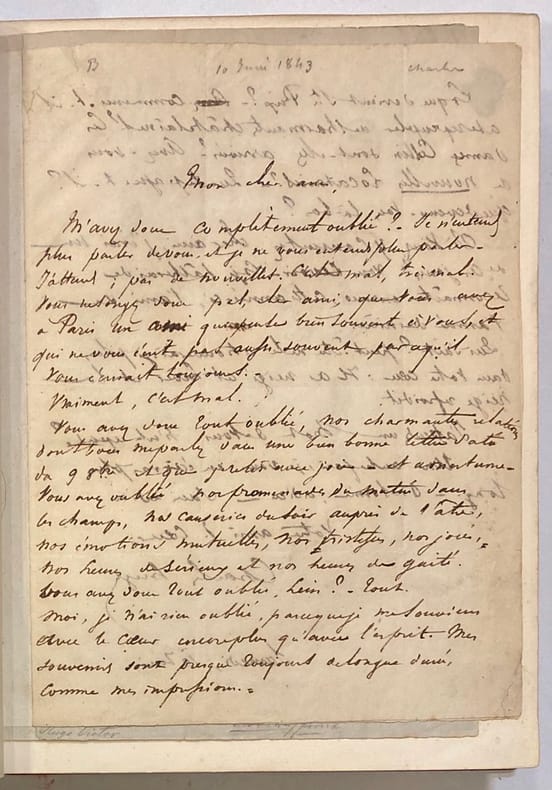 B 10 Juin 1843 Charles
Mon cher ami,
M'avez donc complètement oublié? - Je n'entends
plus parler de vous, et je ne vous entends plus parler -
J'attends; pas de nouvelles. C'est mal, très mal -
Vous ne songez donc pas, cher ami, que vous avez
a Paris un ami qui pense bien souvent à vous, et
qui ne vous écrit pas aussi souvent parcequ'il
vous écrirait toujours. -
Vraiment, c'est mal.
Vous avez donc tout oublié, nos charmantes relations
dont vous me parliez dans une bien bonne lettre datée
du 9 8bre et que je relis avec joie - et amertume -
Vous avez oublié nos promenades du matin dans
les champs, nos causeries du soir auprès de l'âtre,
nos émotions mutuelles, nos tristesses, nos joies, =
nos heures de sérieux et nos heures de gaité.
Vous avez donc tout oublié, hein? - tout.
Moi, je n'ai rien oublié, parceque je me souviens
avec le cœur encore plus qu'avec l'esprit. Mes
souvenirs sont presque toujours de longue durée,
comme mes impressions. =
Hugo Victor